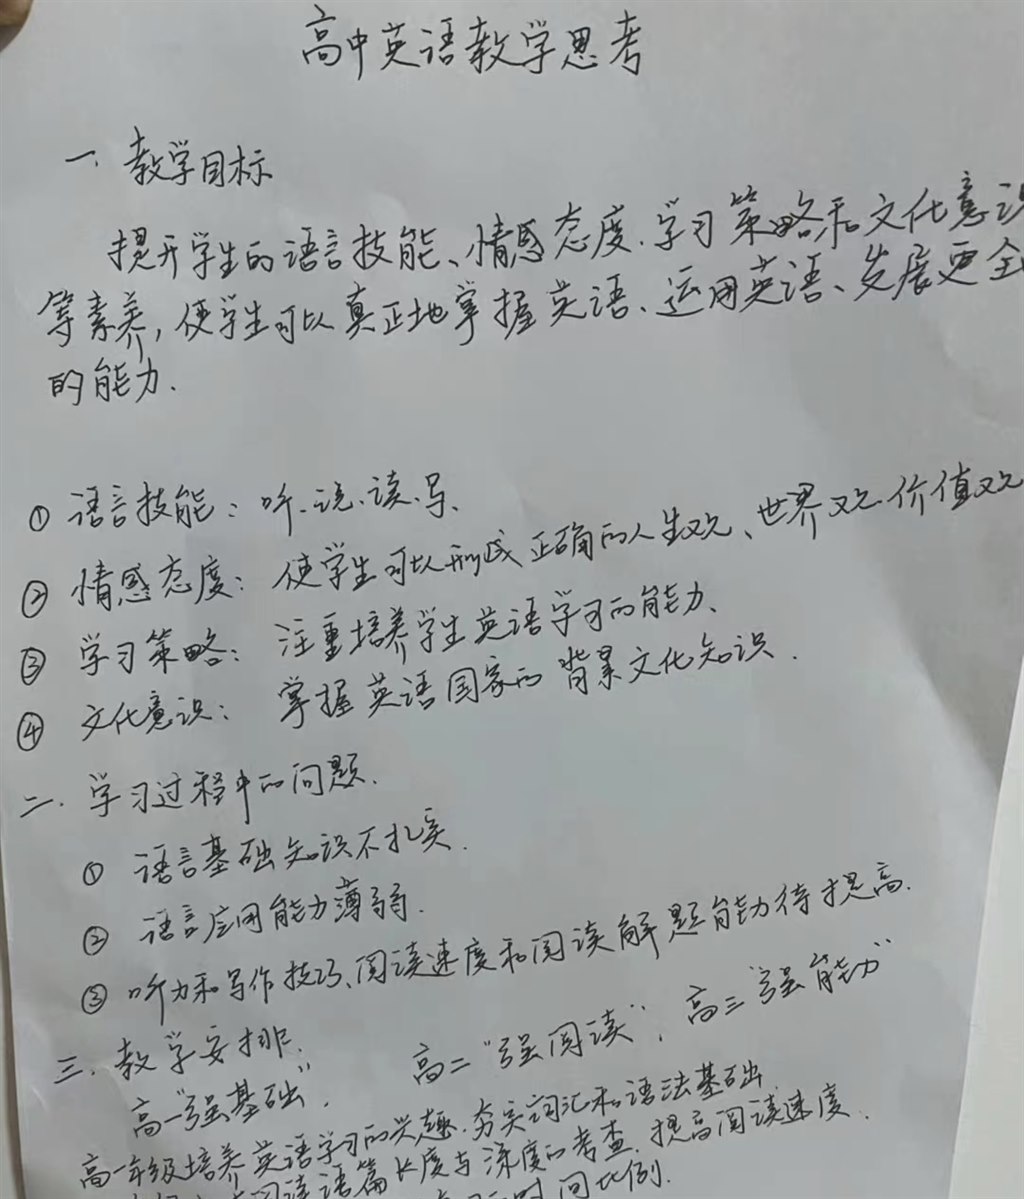 高中英语教学思考
一、教学目标
提升学生的语言技能、情感态度、学习策略和文化意识
等素养，使学生可以真正地掌握英语、运用英语、发展更全
的能力.
① 语言技能：听、说、读、写、
② 情感态度：使学生可以形成正确的人生观、世界观、价值观
③ 学习策略：注重培养学生英语学习的能力、
④ 文化意识：掌握英语国家的背景文化知识.
二、学习过程中的问题.
① 语言基础知识不扎实.
② 语言应用能力薄弱.
③ 听力和写作技巧、阅读速度和阅读解题能力待提高.
三、教学安排:
高一"强基础", 高二"强阅读", 高三"强能力"
高一年级培养英语学习的兴趣、夯实词汇和语法基础
阅读语篇长度与深度的考查、提高阅读速度.
时间比例.